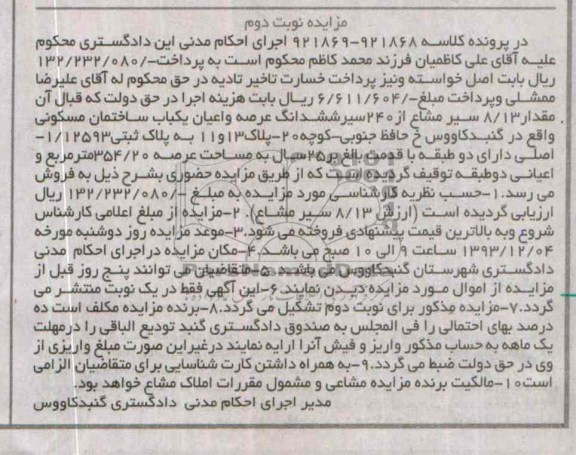 مزایده نوبت دوم
در پرونده کلاسه ۹۲۱۸۶۸-۹۲۱۸۶۹ اجرای احکام مدنی این دادگستری محکوم
علیه آقای علی کاظمیان فرزند محمد کاظم محکوم است به پرداخت-/۱۳۲/۲۳۲/۰۸۰
ریال بابت اصل خواسته ونیز پرداخت خسارت تاخیر تادیه در حق محکوم له آقای علیرضا
ممشلی وپرداخت مبلغ-/۶/۶۱۱/۶۰۴ ریال بابت هزینه اجرا در حق دولت که قبال آن
مقدار۸/۱۳ سیر مشاع از۲۴۰سیرششدانگ عرصه واعیان یکباب ساختمان مسکونی
واقع در گنبدکاووس خ حافظ جنوبی-کوچه۲۰-پلاک۱۳و۱۱ به پلاک ثبتی۱/۱۲۵۹۳-
اصلی دارای دو طبقه با قدمت بالغ بر۲۵سال به مساحت عرصه ۳۵۴/۲۰مترمربع و
اعیانی دوطبقه توقیف گردیده است که از طریق مزایده حضوری بشرح ذیل به فروش
می رسد.۱-حسب نظریه کارشناسی مورد مزایده به مبلغ -/۱۳۲/۲۳۲/۰۸۰ ریال
ارزیابی گردیده است (ارزش ۸/۱۳ سیر مشاع) ۲-مزایده از مبلغ اعلامی کارشناس
شروع وبه بالاترین قیمت پیشنهادی فروخته می شود.۳-موعد مزایده روز دوشنبه مورخه
۱۳۹۳/۱۲/۰۴ ساعت ۹ الی ۱۰ صبح می باشد.۴-مکان مزایده دراجرای احکام مدنی
دادگستری شهرستان گنبدکاووس می باشد.۵-متقاضیان می توانند پنج روز قبل از
مزایده از اموال مورد مزایده دیدن نمایند.۶-این آگهی فقط در یک نوبت منتشر می
گردد.۷-مزایده مذکور برای نوبت دوم تشکیل می گردد.۸-برنده مزایده مکلف است ده
درصد بهای احتمالی را فی المجلس به صندوق دادگستری گنبد تودیع الباقی را درمهلت
یک ماهه به حساب مذکور واریز و فیش آنرا ارایه نمایند درغیراین صورت مبلغ واریزی از
وی در حق دولت ضبط می گردد.۹-به همراه داشتن کارت شناسایی برای متقاضیان الزامی
است۱۰-مالکیت برنده مزایده مشاعی و مشمول مقررات املاک مشاع خواهد بود.
مدیر اجرای احکام مدنی دادگستری گنبدکاووس